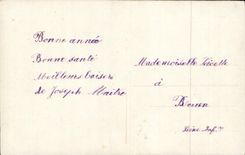 Bonne année
Bonne santé
Meilleurs baisers
de Joseph Maître
Mademoiselle
à
Seine Inf.re